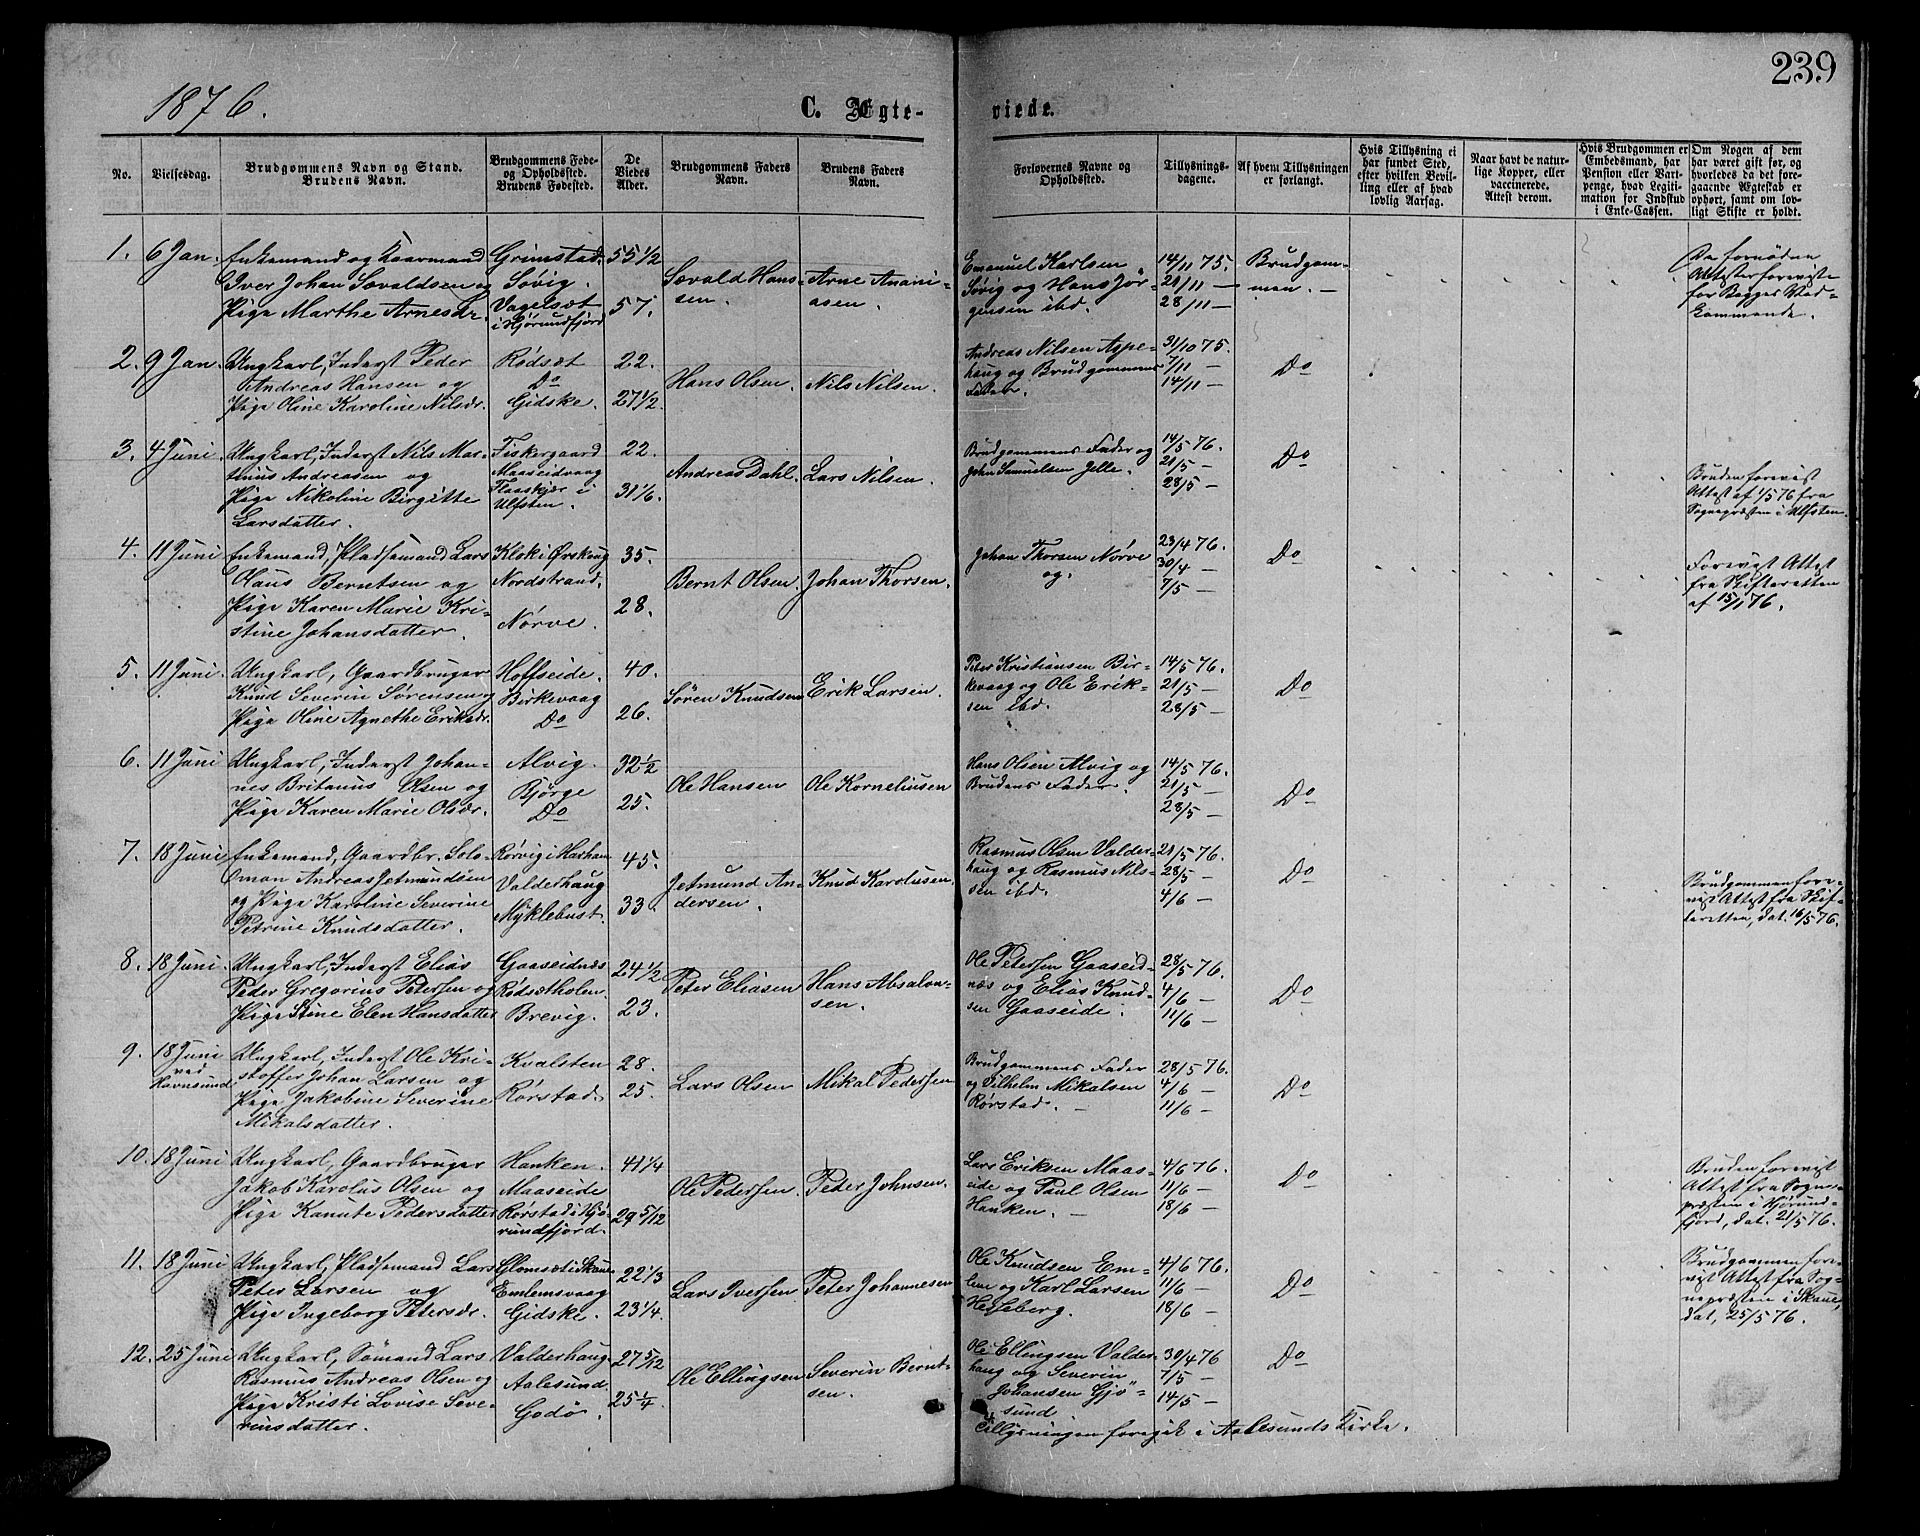 239
1876.
C. Ægte-
viede.
No.
Vielsesdag.
Brudgommens Navn og Stand.
Brudens Navn.
Brudgommens Føde-
og Opholdssted.
Brudens Fødested.
De
Viedes
Alder.
Brudgommens Faders
Navn.
Brudens Faders
Navn.
Forlovernes Navne og
Opholdssted.
Tillysnings-
dagene.
Af hvem Tillysningen
er forlangt.
Hvis Tillysning ei
har fundet Sted,
efter hvilken Bevil-
ling eller af hvad
lovlig Aarsag.
Naar havt de natur-
lige Kopper, eller
vaccinerede.
Attest derom.
Hvis Brudgommen er
Embedsmand, har
Pension eller Vart-
penge, hvad Legiti-
mation for Indskud
i Enke-Cassen.
Om Nogen af dem
har været gift før, og
hvorledes da det fore-
gaaende Ægteskab er
ophørt, samt om lov-
ligt Skifte er holdt.
1.
6 Jan.
Enkemand og Kaarmand
Iver Johan Sævaldsen og
Pige Marthe Arnesdr.
Grimstad.
Søvig.
Vagelsæt
i Hjørundfjord
55 1/2
57.
Sævald Hans-
sen.
Arne Anani-
asen.
Emanuel Karlsen
Søvig og Hans Jør-
gensen ibd.
14/11 75.
21/11 —
28/11 —
Brudgom-
men. —
De fornødne
Attester foreviste
for Begges Ved-
kommende.
2.
9 Jan.
Ungkarl, Inderst Peder
Andreas Hansen og
Pige Oline Karoline Nilsdr.
Rødsæt
Do
Gidske.
22.
27 1/2
Hans Olsen.
Nils Nilsen.
Andreas Nilsen Aspe-
haug og Brudgommens
Fader.
31/10 75.
7/11 —
14/11 —
Do
3.
4 Juni.
Ungkarl, Inderst Nils Mar-
tinus Andreasen og
Pige Nikoline Birgitte
Larsdatter.
Fiskergaard
Maaseidvaag
Flaaskjær i
Ulfsten.
22.
31 1/6.
Andreas Dahl.
Lars Nilsen.
Brudgommens Fader og
John Samuelsen Jelle.
14/5 76.
21/5 —
28/5 —
Do
Bruden forevist
Attest af 1/5 76 fra
Sognepræsten i Ulfsten.
4.
11 Juni
Enkemand, Pladsemand Lars
Olaus Berntsen og
Pige Karen Marie Kri-
stine Johansdatter.
Klok i Ørskoug
Nordstrand.
Nørve.
35.
28.
Bernt Olsen.
Johan Thorsen.
Johan Thorsen Nørve
og.
23/4 76.
30/4 —
7/5 —
Do
Forevist Attest
fra Skifteretten
af 15/1 76.
5.
11 Juni
Ungkarl, Gaardbruger
Knud Severin Sørensen og
Pige Oline Agnethe Eriksdr.
Hoffseide.
Birkevaag
Do
40.
26.
Søren Knudsen
Erik Larsen.
Peter Kristiansen Bir-
kevaag og Ole Erik-
sen ibd.
14/5 76.
21/5 —
28/5 —
Do
6.
11 Juni
Ungkarl, Inderst Johan-
nes Britanus Olsen og
Pige Karen Marie Olsdr.
Alvig.
Bjørge
Do
32 1/2
25.
Ole Hansen
Ole Korneliusen
Hans Olsen Alvig og
Brudens Fader.
14/5 76.
21/5 —
28/5 —
Do
7.
18 Juni
Enkemand, Gaardbr. Salo-
mon Andreas Jetmundsen
og Pige Karoline Severine
Petrine Knudsdatter.
Rørvig i Harham
Valderhaug
Myklebust.
45.
33.
Jetmund An-
dersen.
Knud Karolusen.
Rasmus Olsen Valder-
haug og Rasmus Nils-
sen ibd.
21/5 76.
28/5 —
4/6 —
Do
Brudgommen fore-
vist Attest fra Skif-
teretten, dat. 16/5 76.
8.
18 Juni
Ungkarl, Inderst Elias
Peder Gregorius Petersen og
Pige Stine Elen Hansdatter
Gaaseidnæs
Rødsætholen.
Brevig.
24 1/2
23.
Peter Eliasen
Hans Absalon-
sen.
Ole Petersen Gaaseid-
næs og Elias Knud-
sen Gaaseide.
28/5 76.
4/6 —
11/6 —
Do
9.
18 Juni
ved
Havnsund
Ungkarl, Inderst Ole Kri-
stoffer Johan Larsen og
Pige Jakobine Severine
Mikalsdatter.
Kvalsten
Rørstad.
28.
25.
Lars Olsen
Mikal Pedersen
Brudgommens Fader
og Vilhelm Mikalsen
Rørstad. —
28/5 76.
4/6 —
11/6 —
Do
10.
18 Juni
Ungkarl, Gaardbruger
Jakob Karolus Olsen og
Pige Kanute Pedersdatter
Hanken.
Maaseide
Rørstad i Hjø-
rundfjord.
41 1/4
29 5/12
Ole Pedersen.
Peder Johnsen.
Lars Eriksen Maas-
eide og Paul Olsen
Hanken. —
4/6 76.
11/6 —
18/6 —
Do
Bruden forevist
Attest fra Sogne-
præsten i Hjørund-
fjord, dat. 21/5 76.
11.
18 Juni
Ungkarl, Pladsemand Lars
Peter Larsen og
Pige Ingeborg Petersdr.
Glomsæt i Skaue
Emlemsvaag
Gidske.
22 1/3
23 1/4.
Lars Iversen.
Peter Johannesen
Ole Knudsen Em-
lem og Karl Larsen
Hesseberg.
4/6 76.
11/6 —
18/6 —
Do
Brudgommen fore-
vist Attest fra Sog-
nepræsten i Skaue,
dat. 25/5 76.
12.
25 Juni
Ungkarl, Sømand Lars
Rasmus Andreas Olsen og
Pige Kristi Lovise Seve-
rinsdatter.
Valderhaug.
Aalesund.
Godø.
27 5/12
25 1/4
Ole Ellingsen
Severin Bernt-
sen.
Ole Ellingsen Valder-
haug og Severin
Johansen Gjø-
sund
30/4 76
7/5 —
14/5 —
Do
Tillysningen foregik i Aalesunds Kirke.